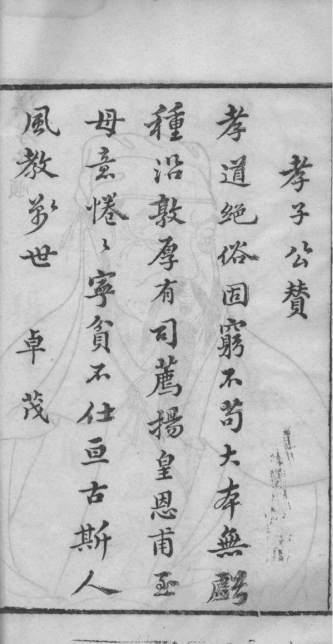 孝子公贊
孝道絶俗固窮不苟大本無虧
種沿敦厚有司薦揚皇恩甫至
母意惓〻寧貧不仕亘古斯人
風教萬世 卓茂